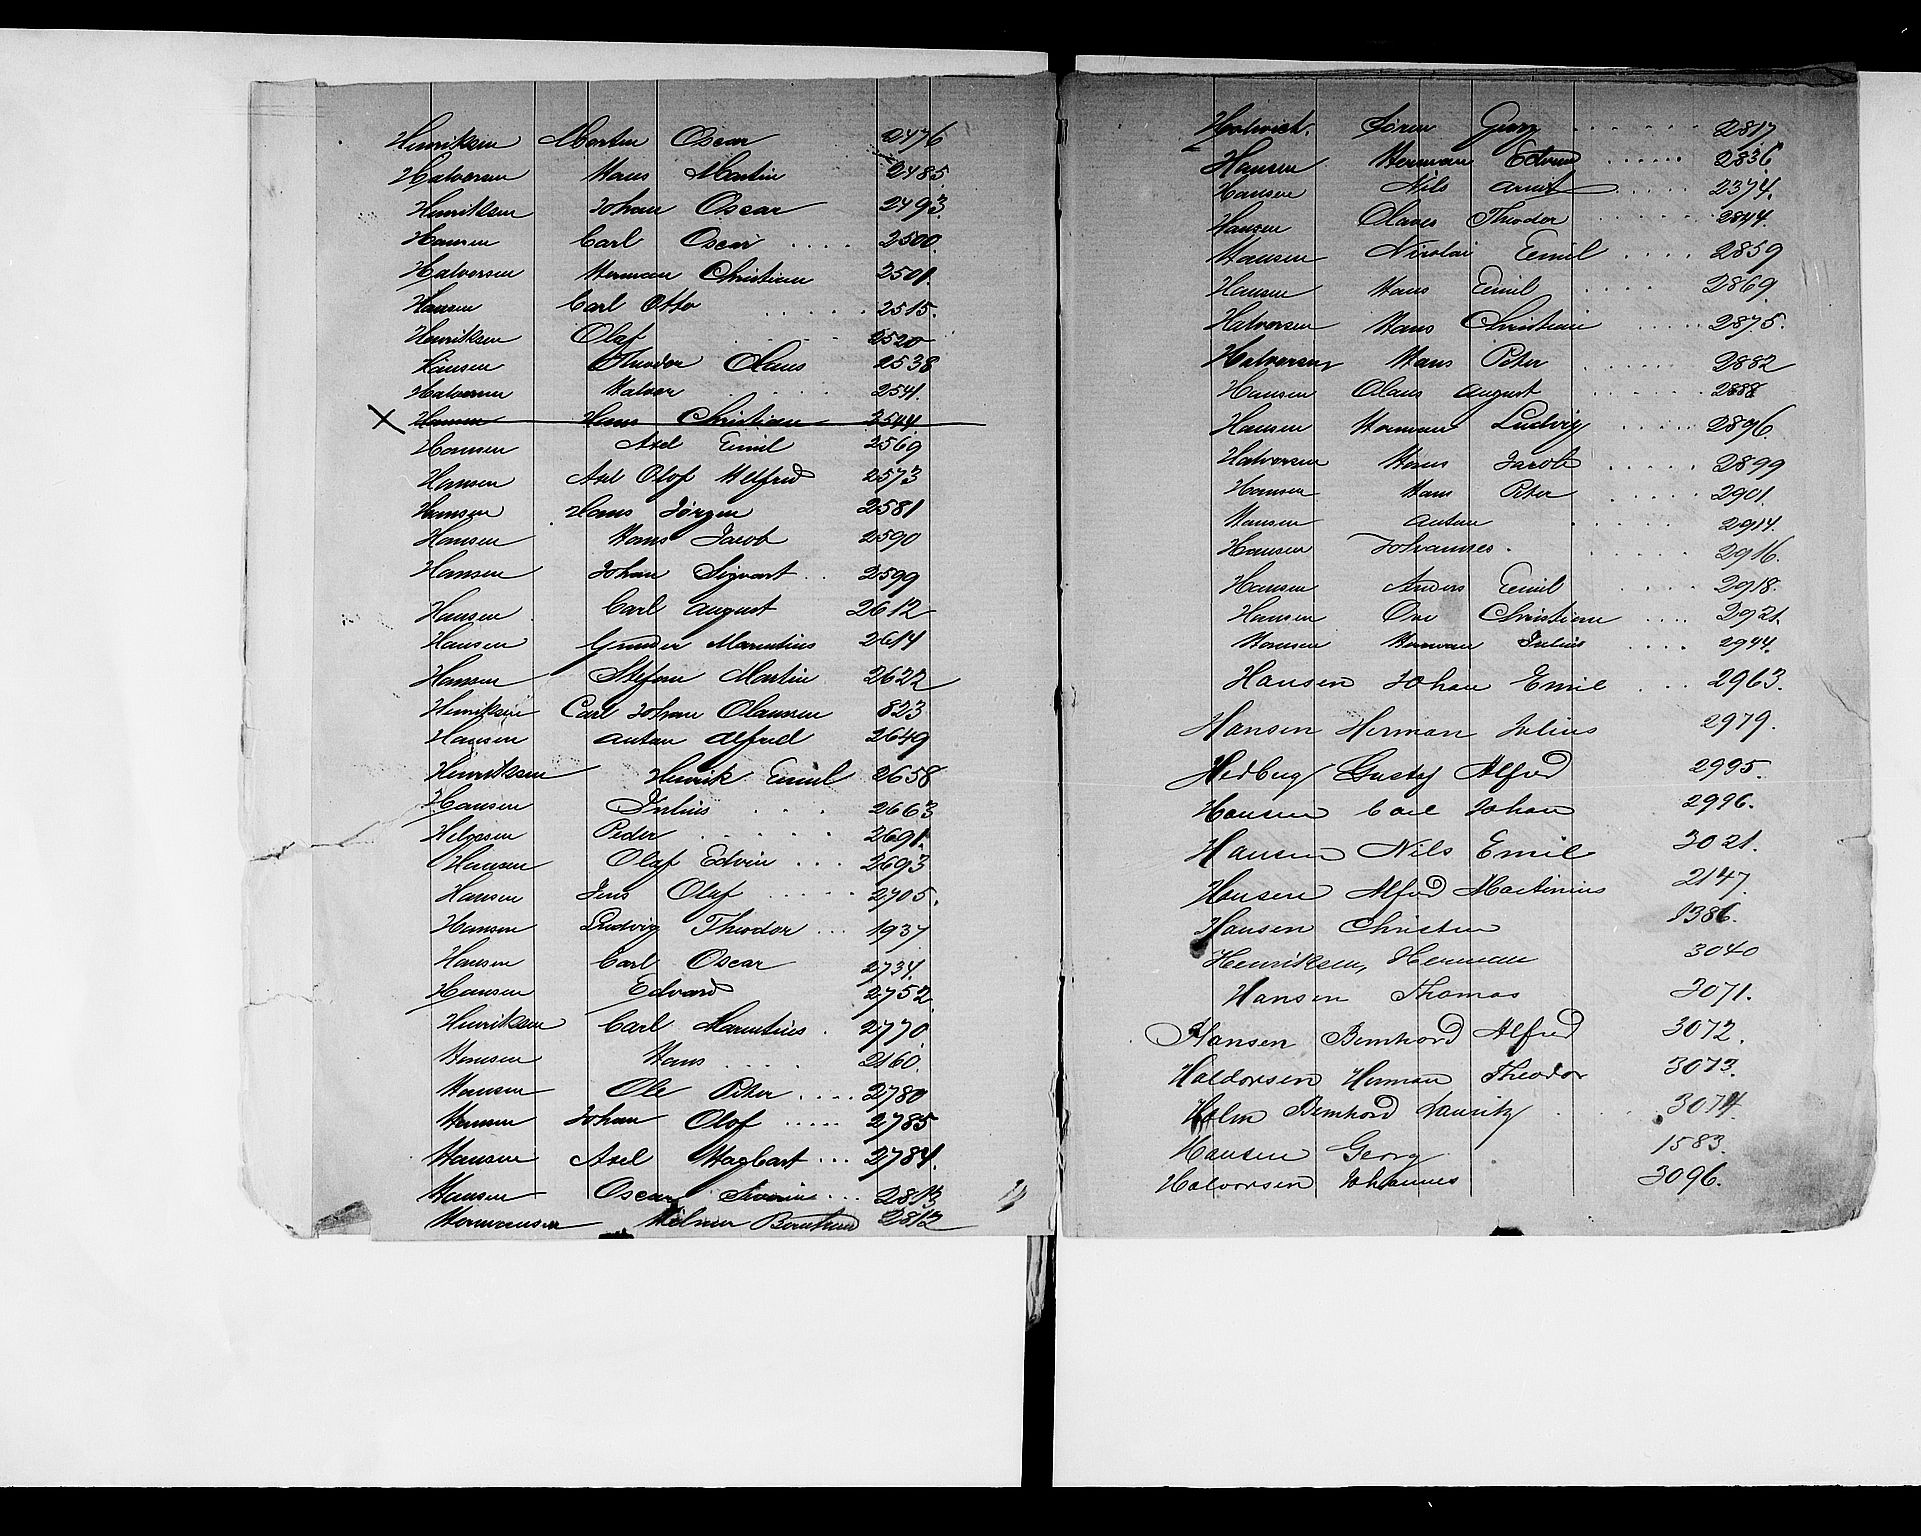 Henriksen Morten Oscar 2476
Halvorsen Hans Martin 2485.
Henriksen Johan Oscar 2493.
Hansen Carl Oscar .... 2500.
Halvorsen Herman Christian 2501.
Hansen Carl Otto ..... 2515.
Henriksen Olaf ... 2520
Hansen Theodor Olaus 2538
Halvorsen Halvor .... 2541.
X Hansen Hans Christian 2544
Hansen Axel Emil 2569
Hansen Axel Olof Alfred 2573
Hansen Hans Jörgen 2581
Hansen Hans Jacob 2590
Hansen Johan Sigvart .. 2599
Hansen Carl August 2612
Hansen Gunder Marentius 2614
Hansen Stefan Martin 2622
Henriksen Carl Johan Olaussen 823
Hansen Anton Alfred 2649
Henriksen Henrik Emil 2658
Hansen Julius ... 2663
Helgesen Peder ..... 2691.
Hansen Olaf Edvin ... 2693
Hansen Jens Olaf ..... 2705.
Hansen Ludvig Theodor ... 1937
Hansen Carl Oscar 2734.
Hansen Edvard 2752
Henriksen Carl Marentius . 2770.
Hansen Hans .... 2160.
Hansen Ole Peter .... 2780
Hansen Johan Olof ..... 2785
Hansen Axel Hagbart ... 2784.
Hansen Oscar Severin ... 2813
Hermansen Hilmar Bernhard 2812
Sören ...... 2817
Hansen Herman Edvard ..... 2836
Hansen Nils Arnt .... 2374.
Hansen Olaves Theodor ...... 2844.
Hansen Nicolai Emil .... 2859
Hansen Hans Emil .... 2869.
Halvorsen Hans Christian .... 2875.
Halvorsen Hans Peter ...... 2882
Hansen Olaus August ..... 2888
Hansen Herman Ludvig ..... 2896.
Halvorsen Hans Jacob ..... 2899
Hansen Hans Peter ..... 2901.
Hansen Anton ...... 2914.
Hansen Johannes. ..... 2916.
Hansen Anders Emil .... 2918.
Hansen Ove Christian .... 2921.
Hansen Herman Julius .... 2944.
Hansen Johan Emil ... 2963.
Hansen Herman Julius 2979.
Hedberg Gustaf Alfred 2995.
Hansen Carl Johan 2996.
Hansen Nils Emil 3021.
Hansen Alfred Martinius 2147.
Hansen Christen 1386.
Henriksen, Herman 3040
Hansen Thomas 3071.
Hansen Bernhard Alfred 3072.
Haldorsen Herman Theodor 3073.
Holm Bernhard Lauritz ... 3074
Hansen Georg 1583.
Halvorsen Johannes 3096.